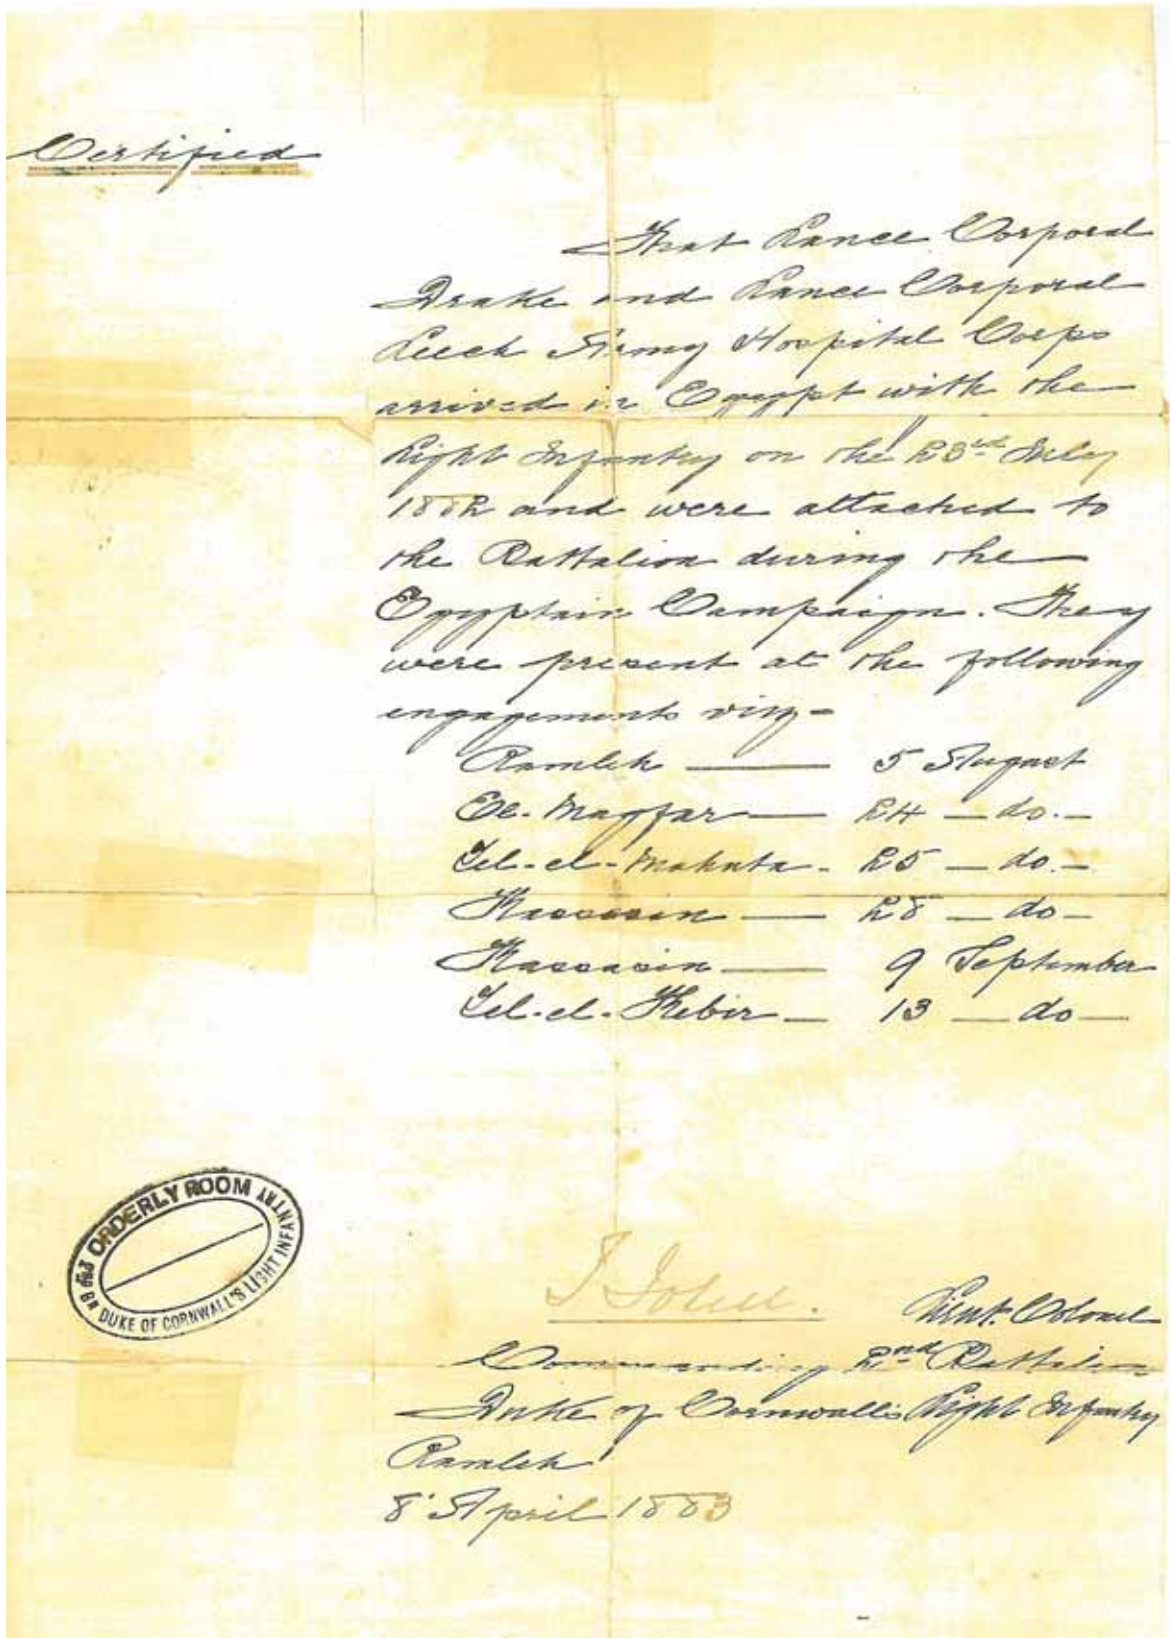 Certified
That Lance Corporal
Drake and Lance Corporal
Leech Army Hospital Corps
arrived in Egypt with the
Light Infantry on the 23rd July
1882 and were attached to
the Battalion during the
Egyptain Campaign. They
were present at the following
engagements viz-
Ramleh — 5 August
El-Magfar — 24 — do. —
Tel-el-Mahuta - 25 — do. —
Kassasin — 28 — do —
Kassasin — 9 September
Tel-el-Kebir — 13 — do —
ORDERLY ROOM
DUKE OF CORNWALL'S LIGHT INFANTRY
Lieut. Colonel
Commanding 2nd Battalion
Duke of Cornwall's Light Infantry
Ramleh
8 April 1883